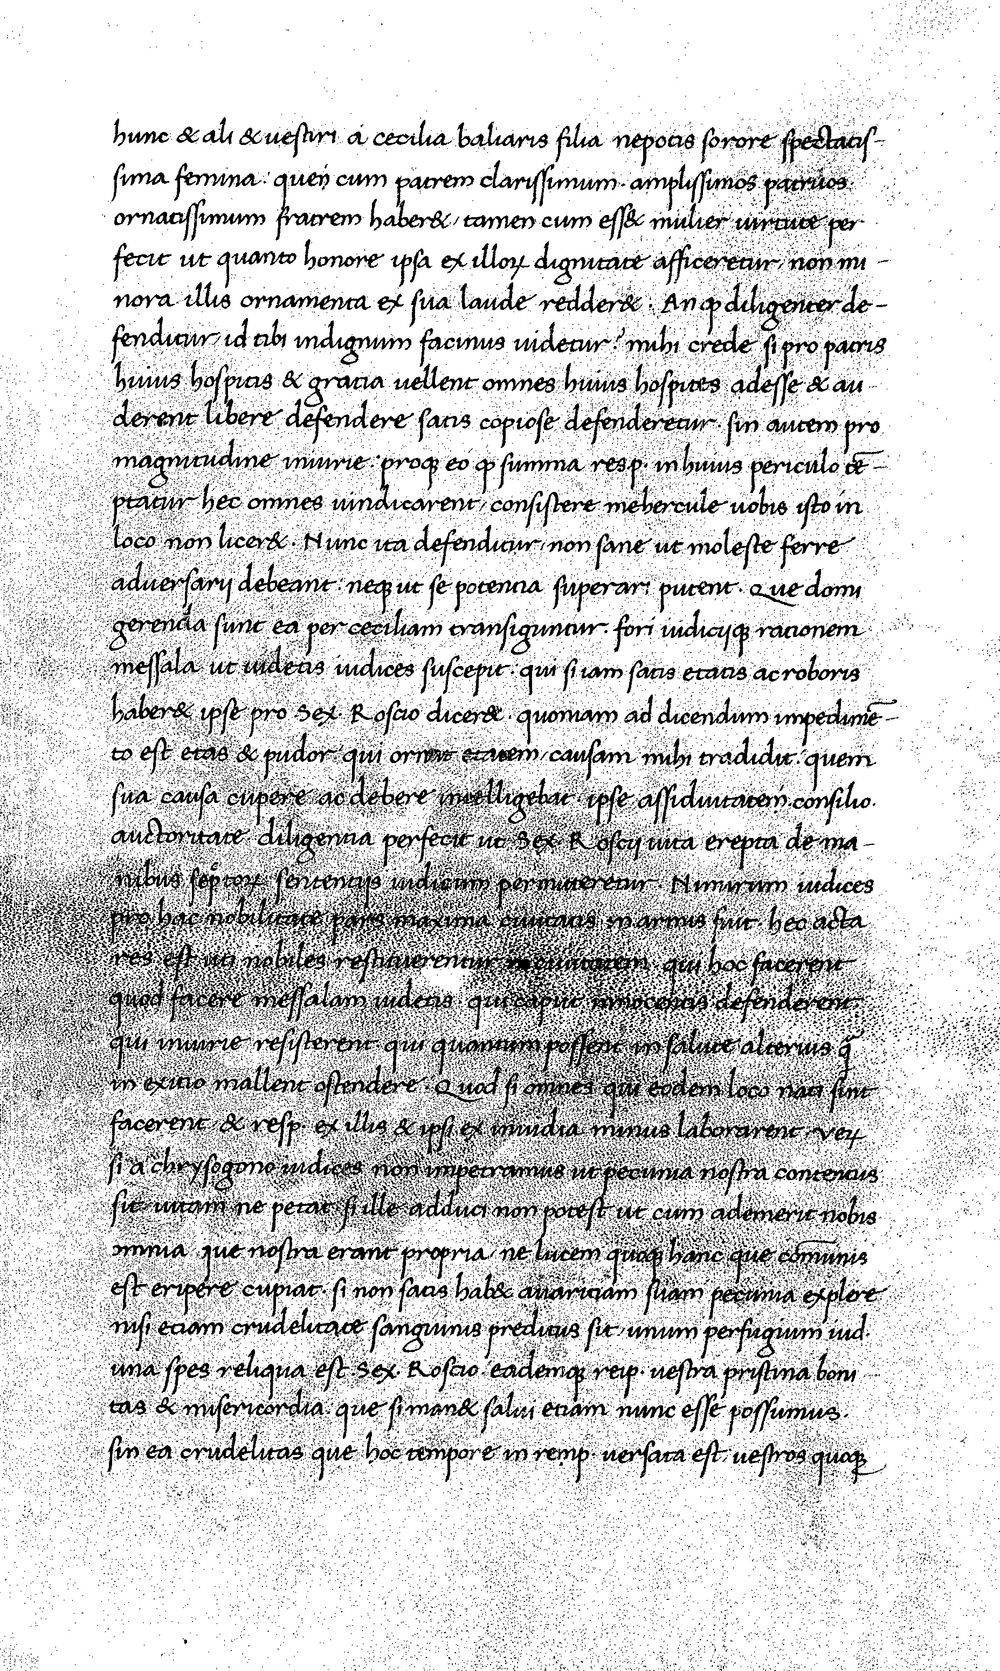 hunc & ali & uestiri a cecilia baliaris filia nepotis sorore spectatis-
sima femina: quen cum patrem clarissimum. amplissimos patruos.
ornatissimum fratrem haber& / tamen cum ess& mulier uirtute per
fecit ut quanto honore ipsa ex illoꝝ dignitate afficeretur / non mi -
nora illis ornamenta ex sua laude redder&. An ꝙ diligenter de-
fenditur / id tibi indignum facinus uidetur? mihi crede si pro patris
huius hospitis & gratia uellent omnes huius hospites adesse & au
derent libere defendere satis copiose defenderetur. sin autem pro
magnitudine iniurie: proqꝫ eo ꝙ summa resp. in huius periculo tē-
ptatur hec omnes uindicarent / consistere mehercule uobis isto in
loco non licer&. Nunc ita defenditur / non sane ut moleste ferre
aduersarij debeant: neqꝫ ut se potentia superari putent. Que domi
gerenda sunt ea per ceciliam transiguntur. fori iudicijqꝫ rationem
messala ut uidetis iudices suscepit. qui si iam satis etatis ac roboris
haber& ipse pro Sex. Roscio dicer&. quoniam ad dicendum impedimē-
to est etas & pudor qui ornat etatem / causam mihi tradidit: quem
sua causa cupere ac debere intelligebat: ipse assiduitatem consilio.
auctoritate diligentia perfecit ut Sex. Roscij uita erepta de ma -
nibus sententijs iudicum permitteretur. Nimirum iudices
pro hac nobilitate pars maxima ciuitatis in armis fuit. hec acta
res est uti nobiles restituerentur in ciuitatem. qui hoc facerent
quod facere messalam uidetis. qui caput innocentis defenderent.
qui iniurie resisterent qui quantum possent in salute alterius q̄
in exitio mallent ostendere. Quod si omnes qui eodem loco nati sunt
facerent / & resp. ex illis & ipsi ex inuidia minus laborarent. Veꝝ
si a chrysogono iudices non impetramus ut pecunia nostra contentus
sit / uitam ne petat. si ille adduci non potest ut cum ademerit nobis
omnia que nostra erant propria / ne lucem quoqꝫ hanc que com̄unis
est eripere cupiat. si non satis hab& auaritiam suam pecunia explere
nisi etiam crudelitate sanguinis preditus sit / unum perfugium iud.
una spes reliqua est Sex. Roscio. eademqꝫ reip. uestra pristina boni
tas & misericordia. que si man& salui etiam nunc esse possumus.
sin ea crudelitas que hoc tempore in remp. uersata est / uestros quoqꝫ